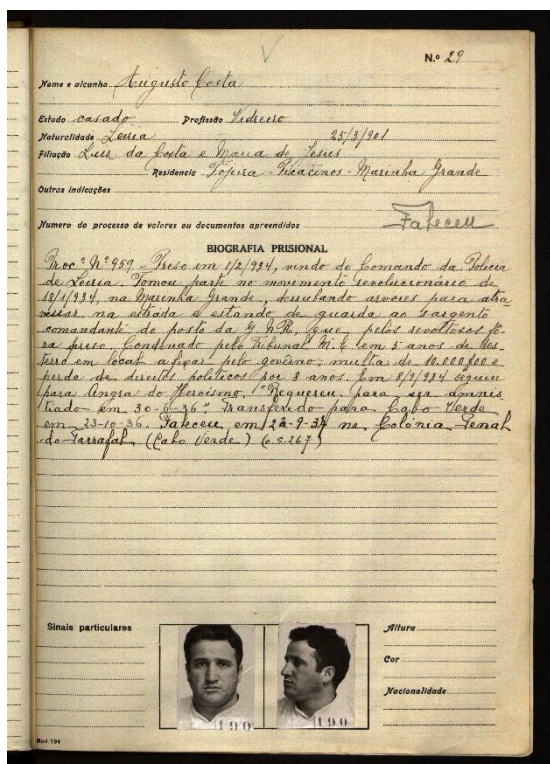 N.º 29
Nome e alcunha Augusto Costa
Estado casado Profissão Vidreiro
Naturalidade Leiria 25/3/901
Filiação Luiz da Costa e Maria de Jesus
Residencia Topeira - Picacinos - Marinha Grande
Outras indicações
Numero do processo de valores ou documentos apreendidos Faleceu
BIOGRAFIA PRISIONAL
Proc.º Nº 959 - Preso em 1/2/934, vindo do Comando da Policia
de Leiria. Tomou parte no movimento revolucionário de
18/1/934 na Marinha Grande, derrubando arvores para atra
vessar na estrada e estando de guarda ao sargento
comandante do posto da G.N.R., que, pelos revoltosos fô
ra preso. Condenado pelo Tribunal M. E. em 5 anos de des
terro em local a fixar pelo govêrno; multa de 10.000$00 e
perda de direitos politicos por 8 anos. Em 8/9/934 seguiu
para Angra do Heroismo. "Requereu para ser amnis
tiado em 30-6-36". Transferido para Cabo Verde
em 23-10-36. Faleceu em 22-9-37 na Colónia Penal
do Tarrafal (Cabo Verde) (o.s. 267)
Sinais particulares
190
190
Altura
Cor
Nacionalidade
Mod. 194